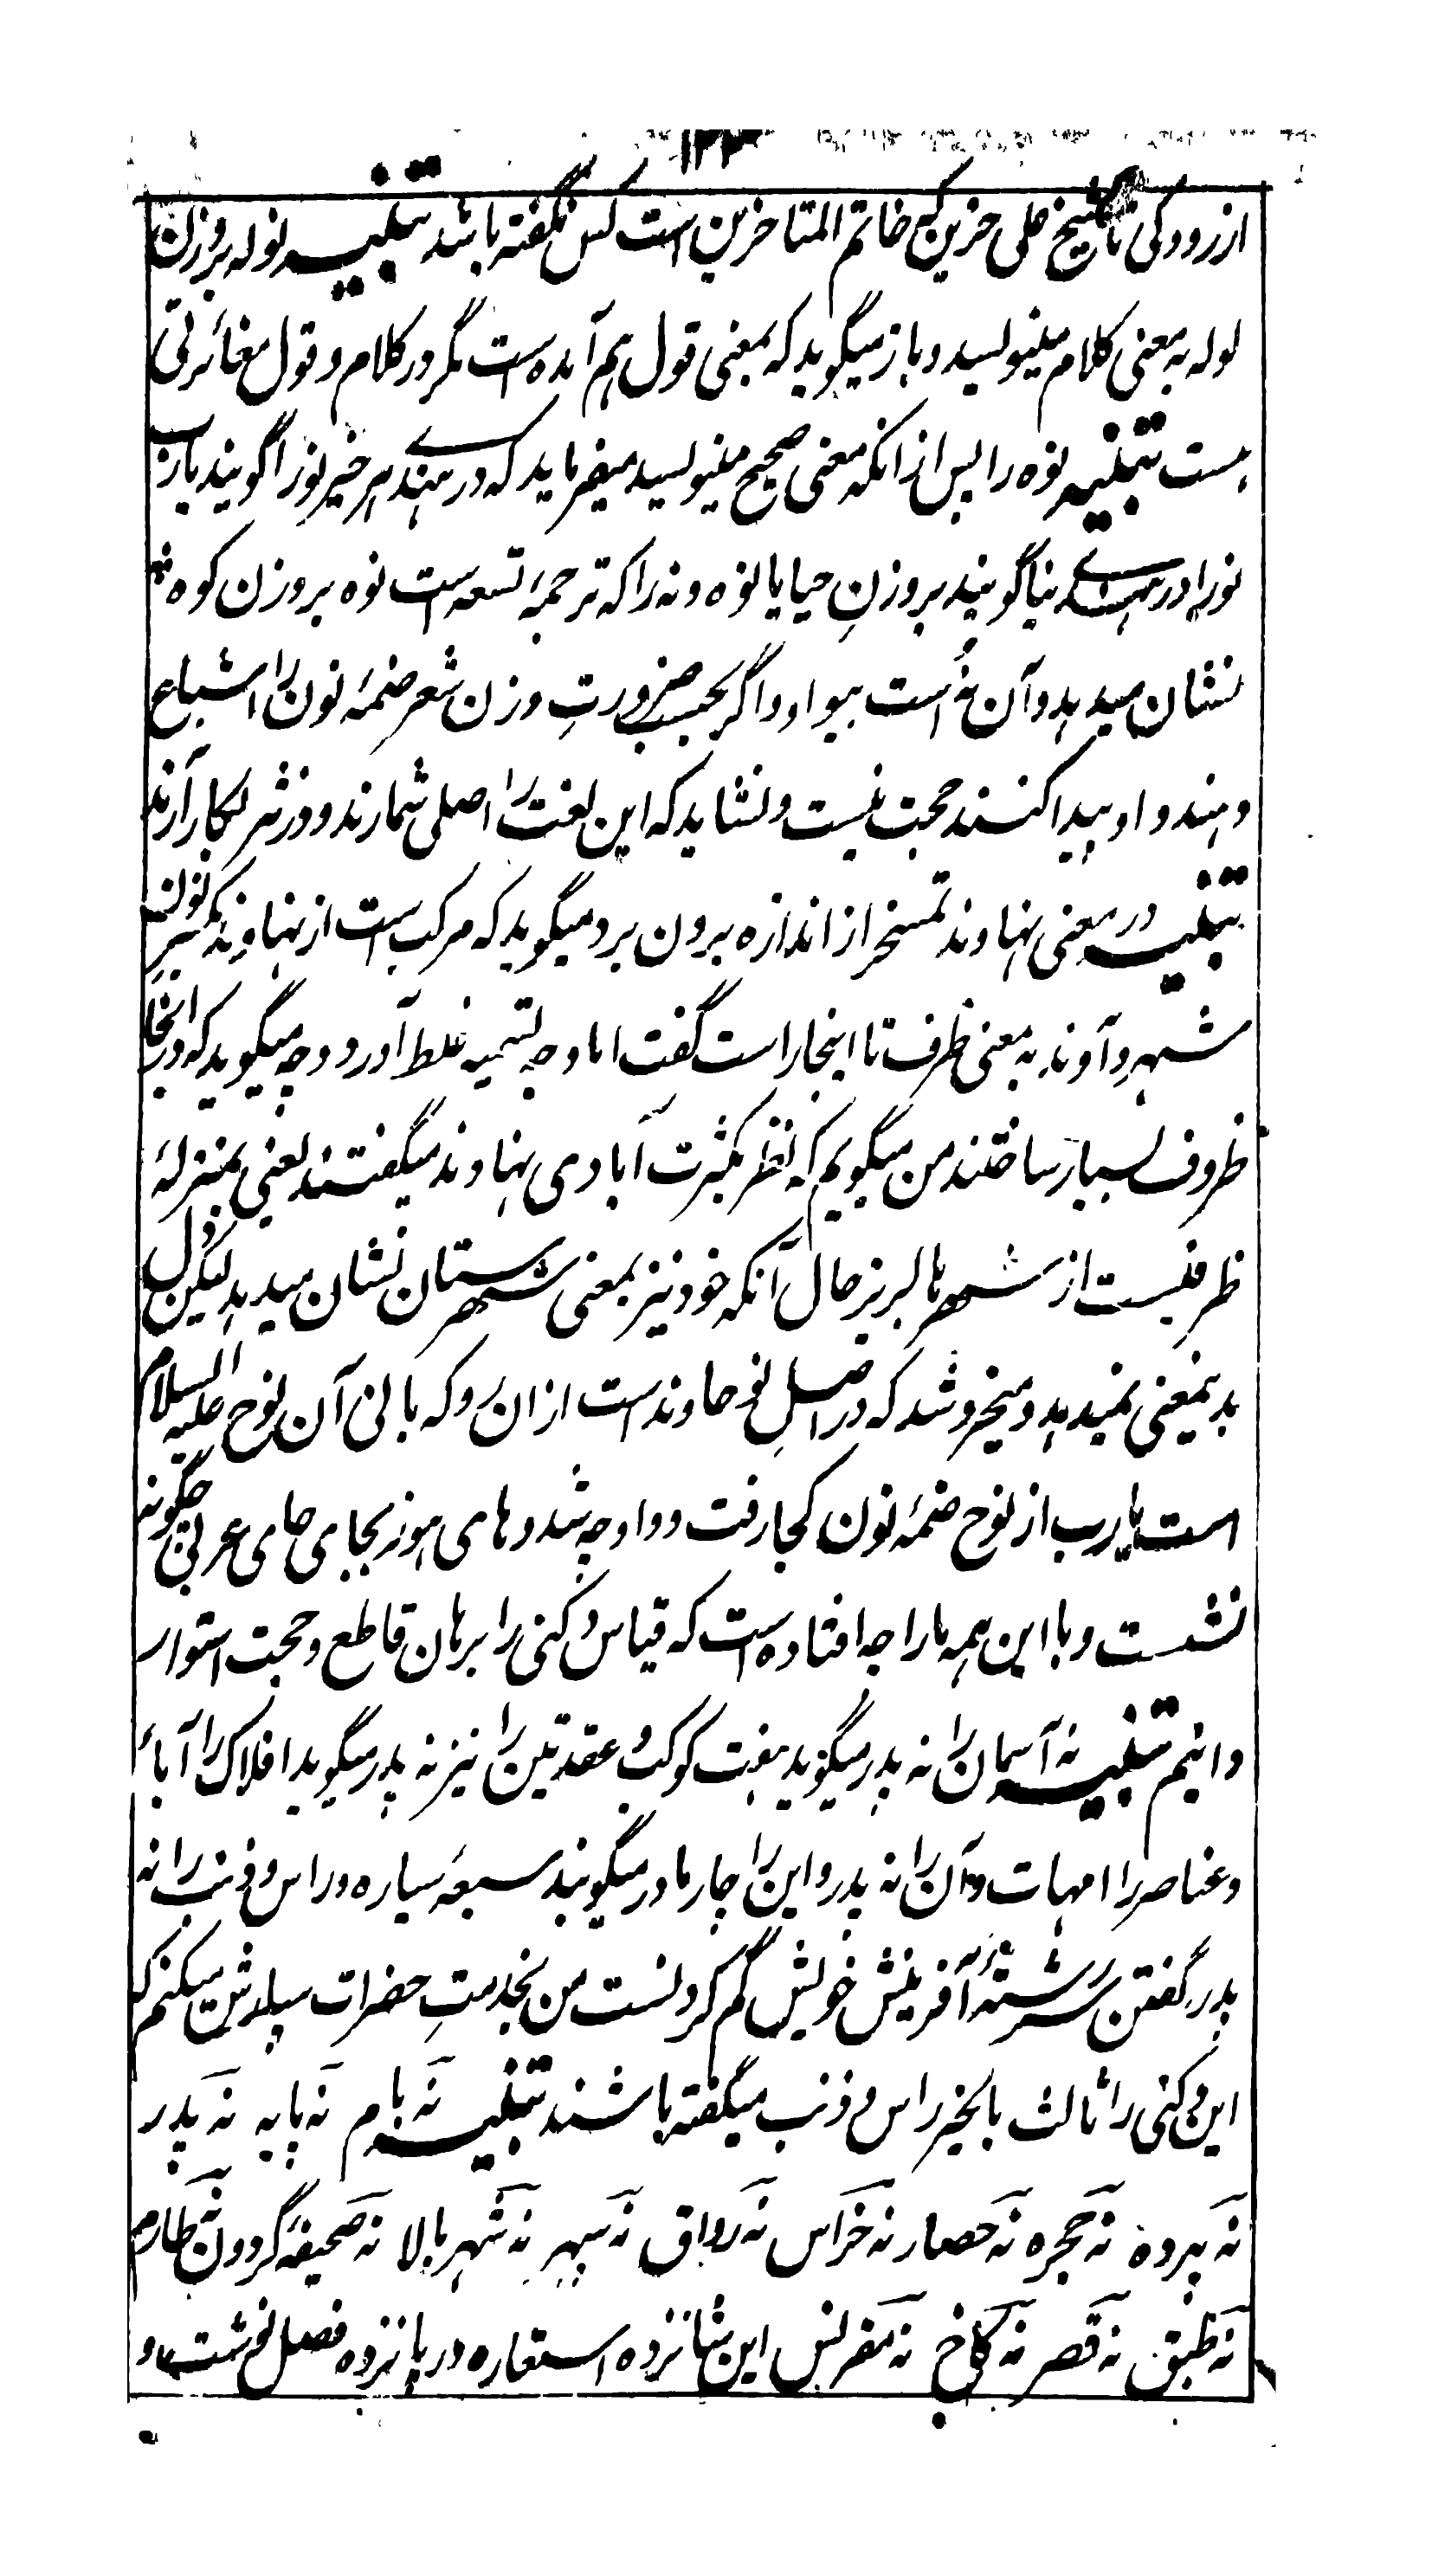 ۱۲۲
از رودکی تا شیخ علی حزین که خاتم المتاخرین است کس نگفته باشد تنبیه نوله بروزن
لوله به معنی کلام مینویسد و باز میگوید که بمعنی قول هم آمده است مگر در کلام و قول مغائرتی
هست تنبیه نوه را پس از انکه معنی صحیح مینویسد میفرماید که در هندی هر خیر نو را گویند یا رب
نو را در هندی نیا گویند بروزنِ حیا یا نوه و نه را که ترجمهٔ تسعه است نوه بروزن کوه
نشان میدهد و آن نُه است بیواو و اگر بحسب ضرورتِ وزن شعر ضمهٔ نون را اشباع
دهند و او پیدا کنند حجت نیست و نشاید که این لغت را اصلی شمارند و در نثر بکار آرند
تنبیه در معنی نهاوند تمسخر از اندازه برون برد میگوید که مرکب است از نهاوند بکسر نون
شهر و آوند به معنی ظرف تا اینجا راست گفت اما وجه تسمیه غلط آورد و وجه میگوید که در انجا
ظروف بسیار ساختند من میگویم که نظر بکثرت آبادی نهاوند میگفتند یعنی بمنزلهٔ
ظرفیست از شهر ها لبریز حال آنکه خود نیز بمعنی شهرستان نشان میدهد لیکن دل
بدینمعنی نمیدهد و میخروشد که در اصلِ نوحاوند است از ان رو که بانی آن نوح علیه السلام
است یا رب از نوح ضمهٔ نون کجا رفت و واو چه شد و های هوز بجای حای عربی چگونه
نشست و با این همه ما را چه افتاده است که قیاس دکنی را برهان قاطع و حجت استوار
دانیم تنبیه نه آسمان را نه پدر میگوید هفت کوکب و عقدتین را نیز نه پدر میگوید افلاک را آباء
و عناصر را امهات و آن را نه پدر و این را چار مادر میگویند سبعهٔ سیاره و راس و ذنب را نه
پدر گفتن سررشتهٔ آفرینش خویش گم کردنست من بخدمتِ حضرات سپارش میکنم که
این دکنی را ثالث بالخیر راس و ذنب میگفته باشند تنبیه نَه بام نَه پایه نَه پدر
نَه پرده نَه حجره نَه حصار نَه خراس نَه رواق نَه سپهر نَه شهر بالا نَه صحیفهٔ گردون نَه طارم
نَه طبق نَه قصر نَه کاخ نَه مقرنس این شانزده استعاره در پانزده فصل نوشت و